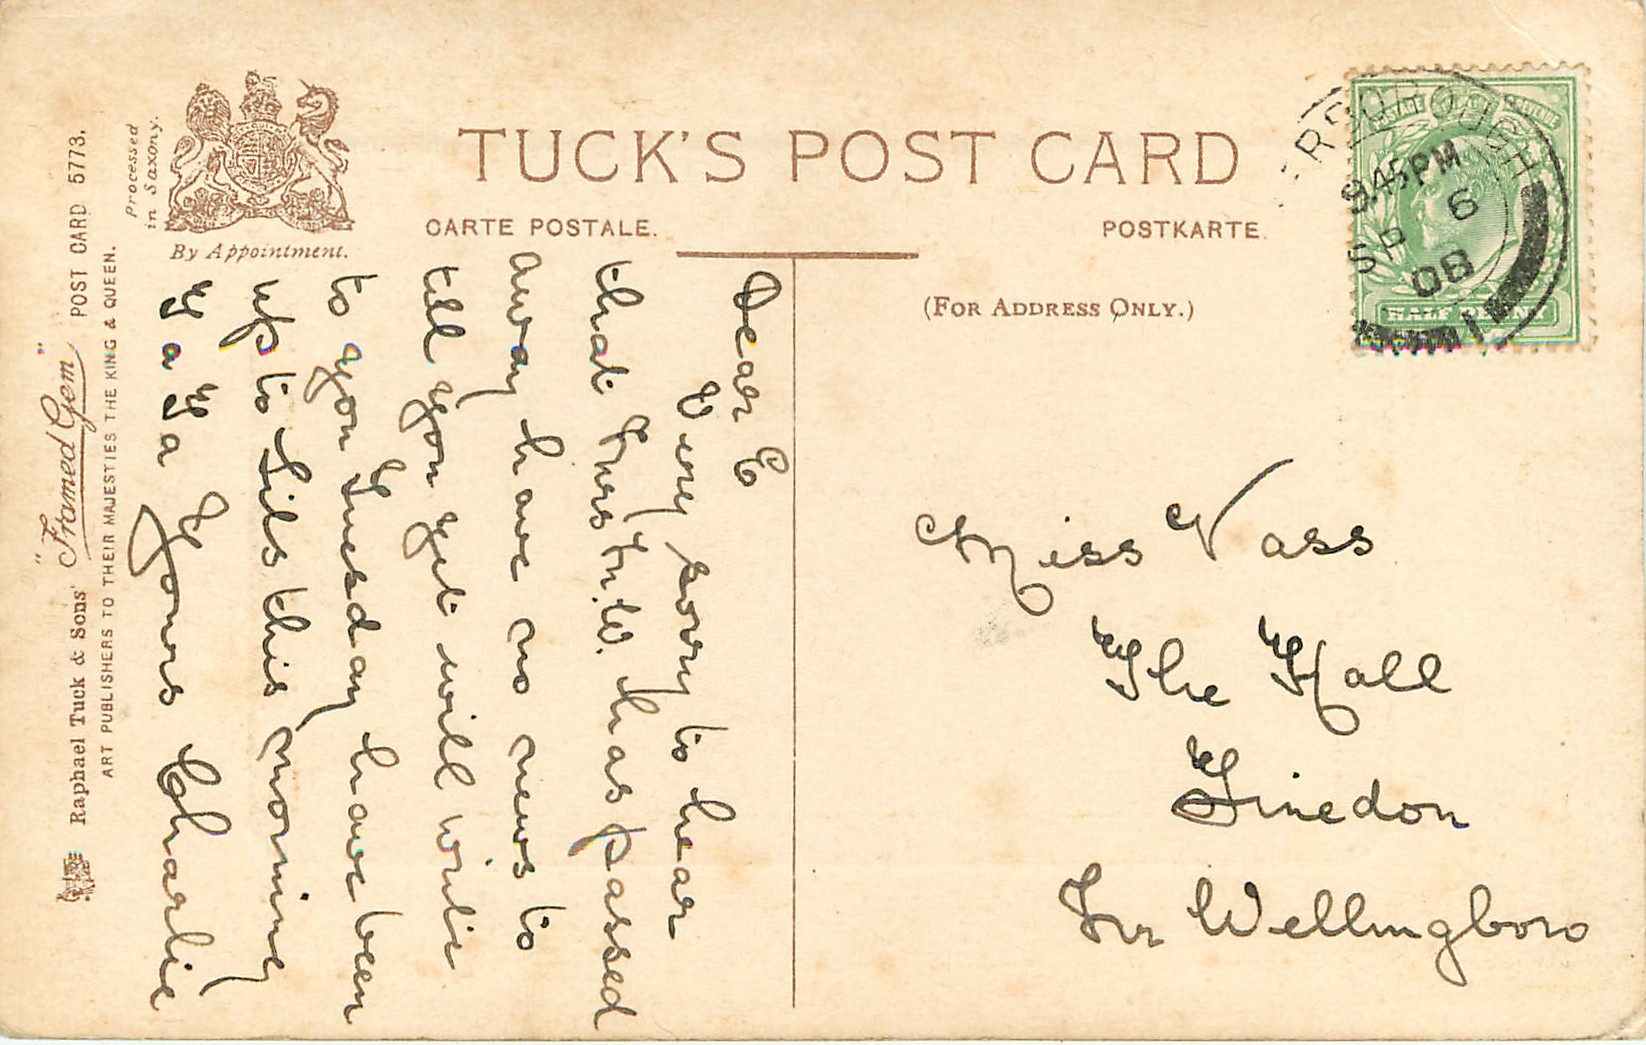 TUCK'S POST CARD
CARTE POSTALE.
POSTKARTE.
(FOR ADDRESS ONLY.)
Processed
in Saxony.
By Appointment.
Raphael Tuck & Sons' "Framed Gem" POST CARD 5773.
ART PUBLISHERS TO THEIR MAJESTIES THE KING & QUEEN.
HALF PENNY
9.45PM
SP 6
08
Dear E
Very sorry to hear
that Mrs W. has passed
away have no news to
till you get will write
to you Tuesday have been
up to Sils this morning
Ta Ta Yours Charlie
Miss Vass
The Hall
Finedon
Nr Wellingboro